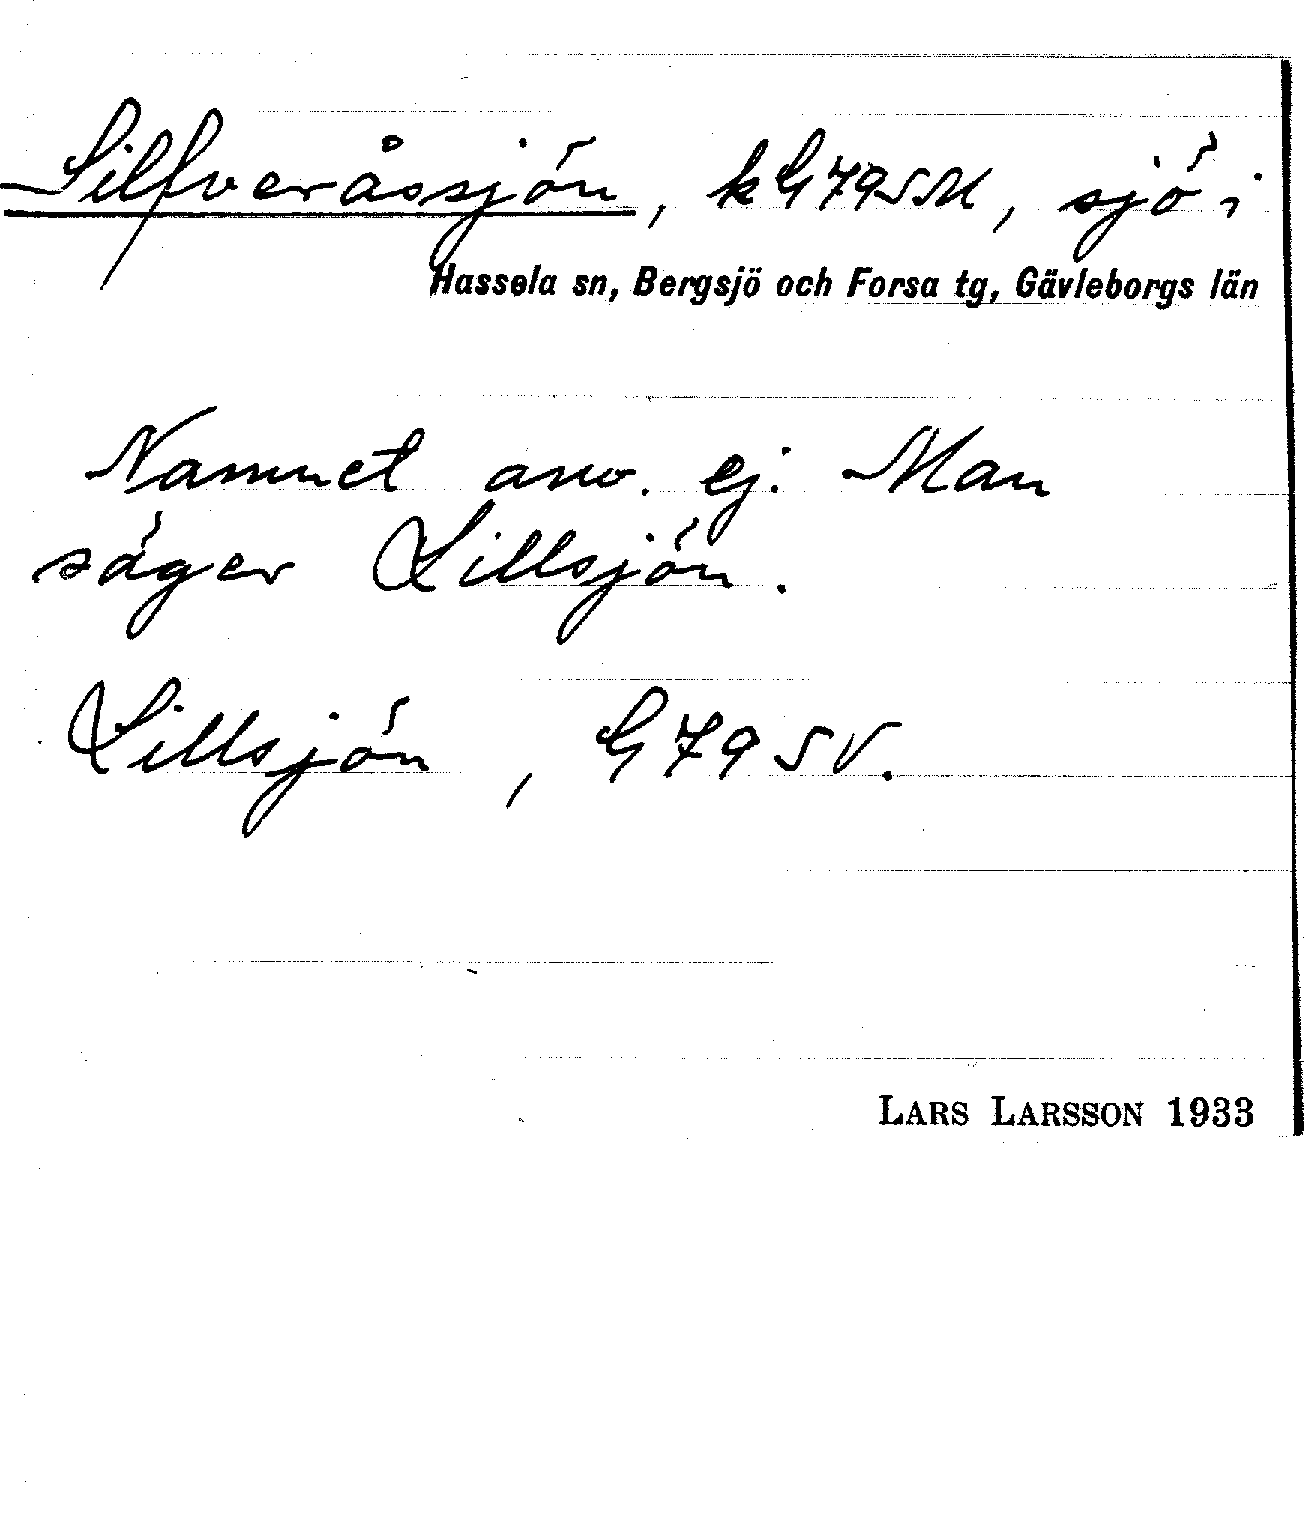 Silfveråssjön, kG79SM, sjö i
Hassela sn, Bergsjö och Forsa tg, Gävleborgs län
Namnet anv. ej. Man
säger Lillsjön.
Lillsjön, G79SV.
LARS LARSSON 1933